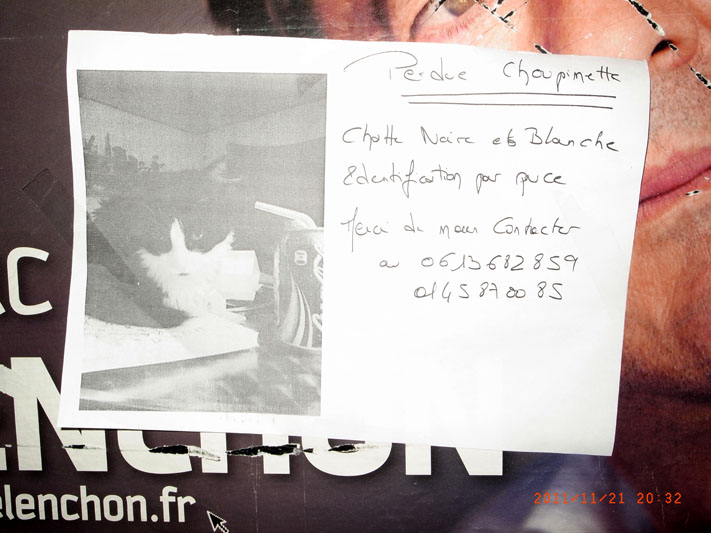 Perdue Choupinette
Chatte Noire et Blanche
Identification par puce
Merci de nous Contacter
au 0613682859
0145870085
AC
ENCHON
elenchon.fr
2011/11/21 20:32